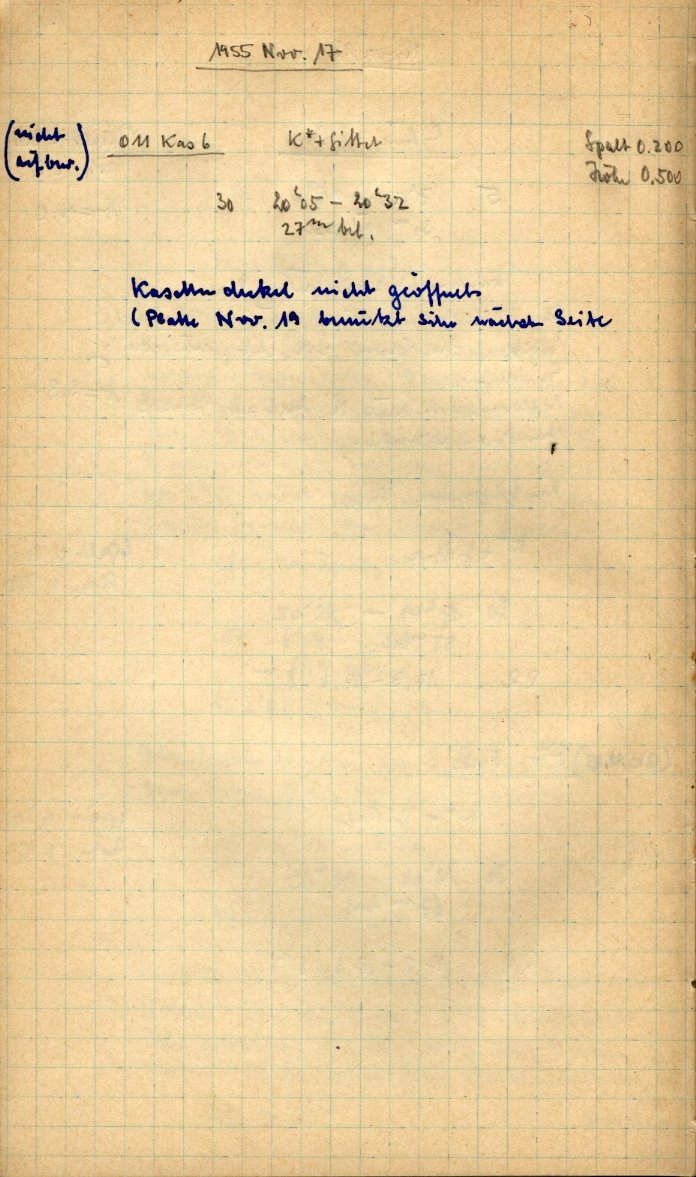 1955 Nov. 17
(nicht aufbew.)
011 Kas 6 K*+Gitter Spalt 0.200
Höhe 0,500
30 20h05 – 20h32
27m bel.
Kassettendeckel nicht geöffnet
(Platte Nov. 19 benützt siehe nächste Seite